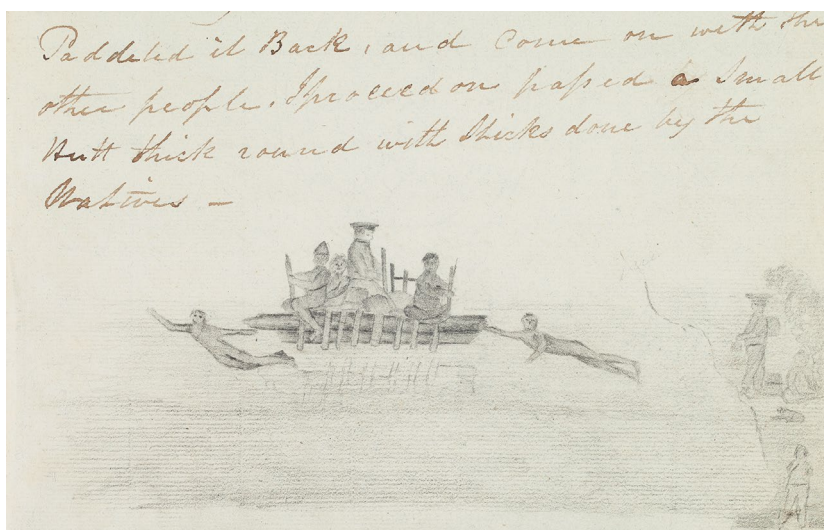 Paddeled it Back, and Come on with the
other people. I proceed on passed a Small
Hutt thick round with Sticks done by the
Natives —